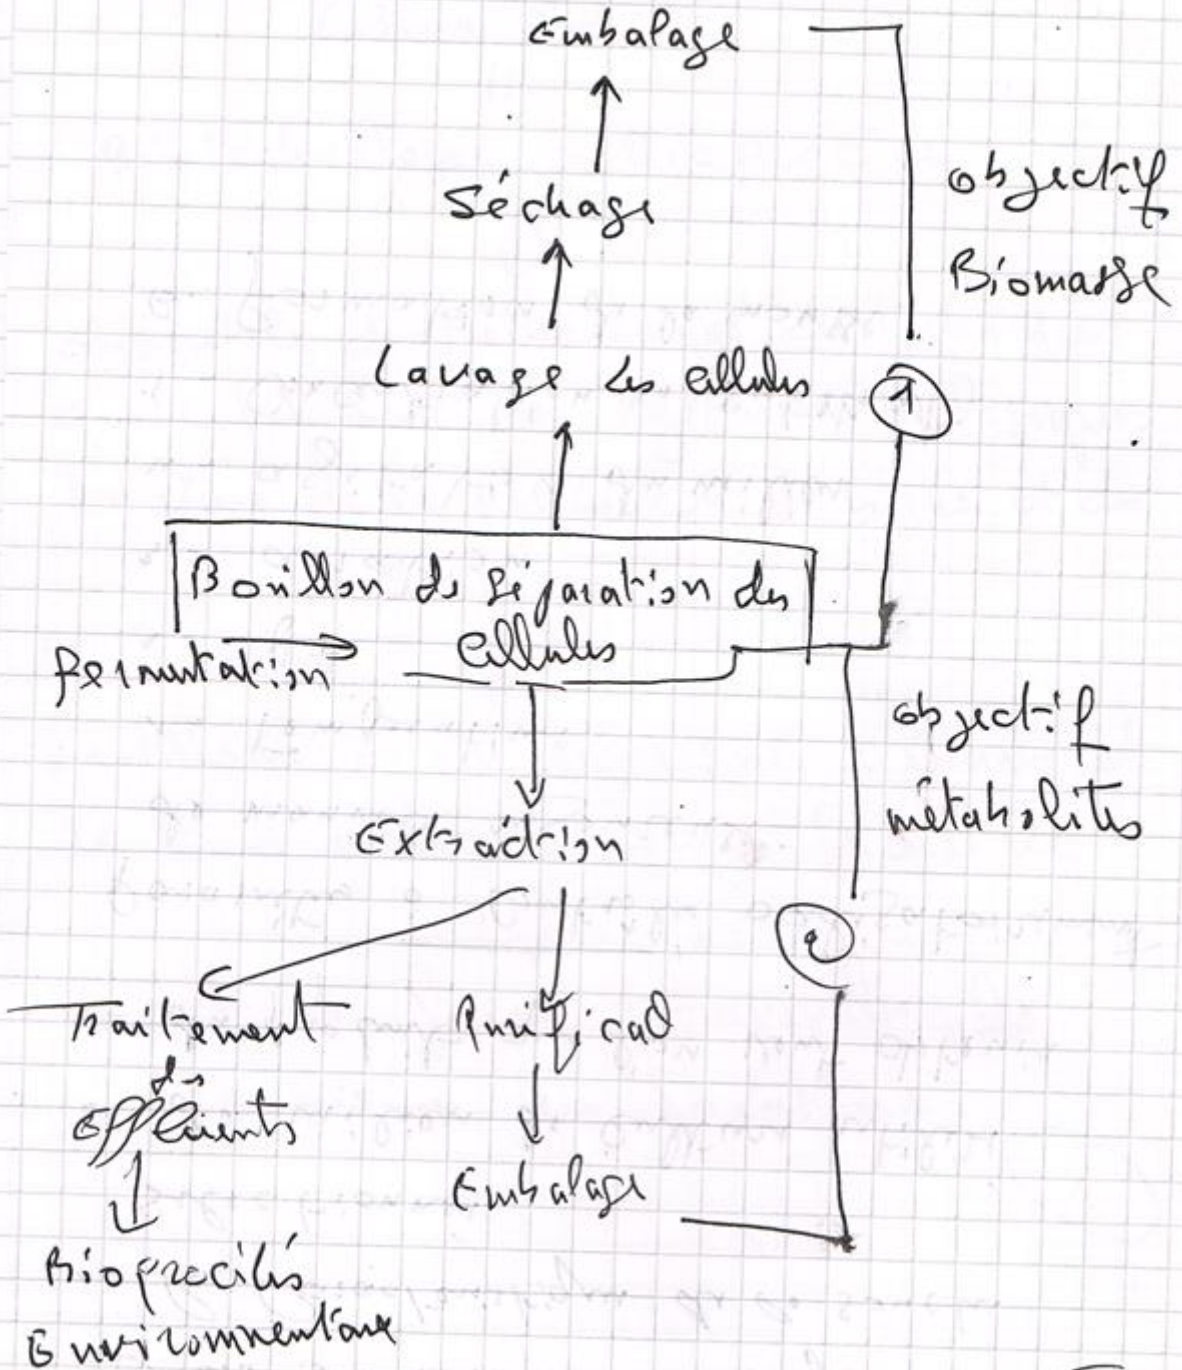 Embalage
Séchage
objectif
Biomasse
Lavage des cellules
1
Bouillon de séparation des
cellules
fermentation
objectif
métabolites
Extraction
2
Traitement
des
Effluents
Purificat°
Embalage
Bioprocédés
Environnentaux